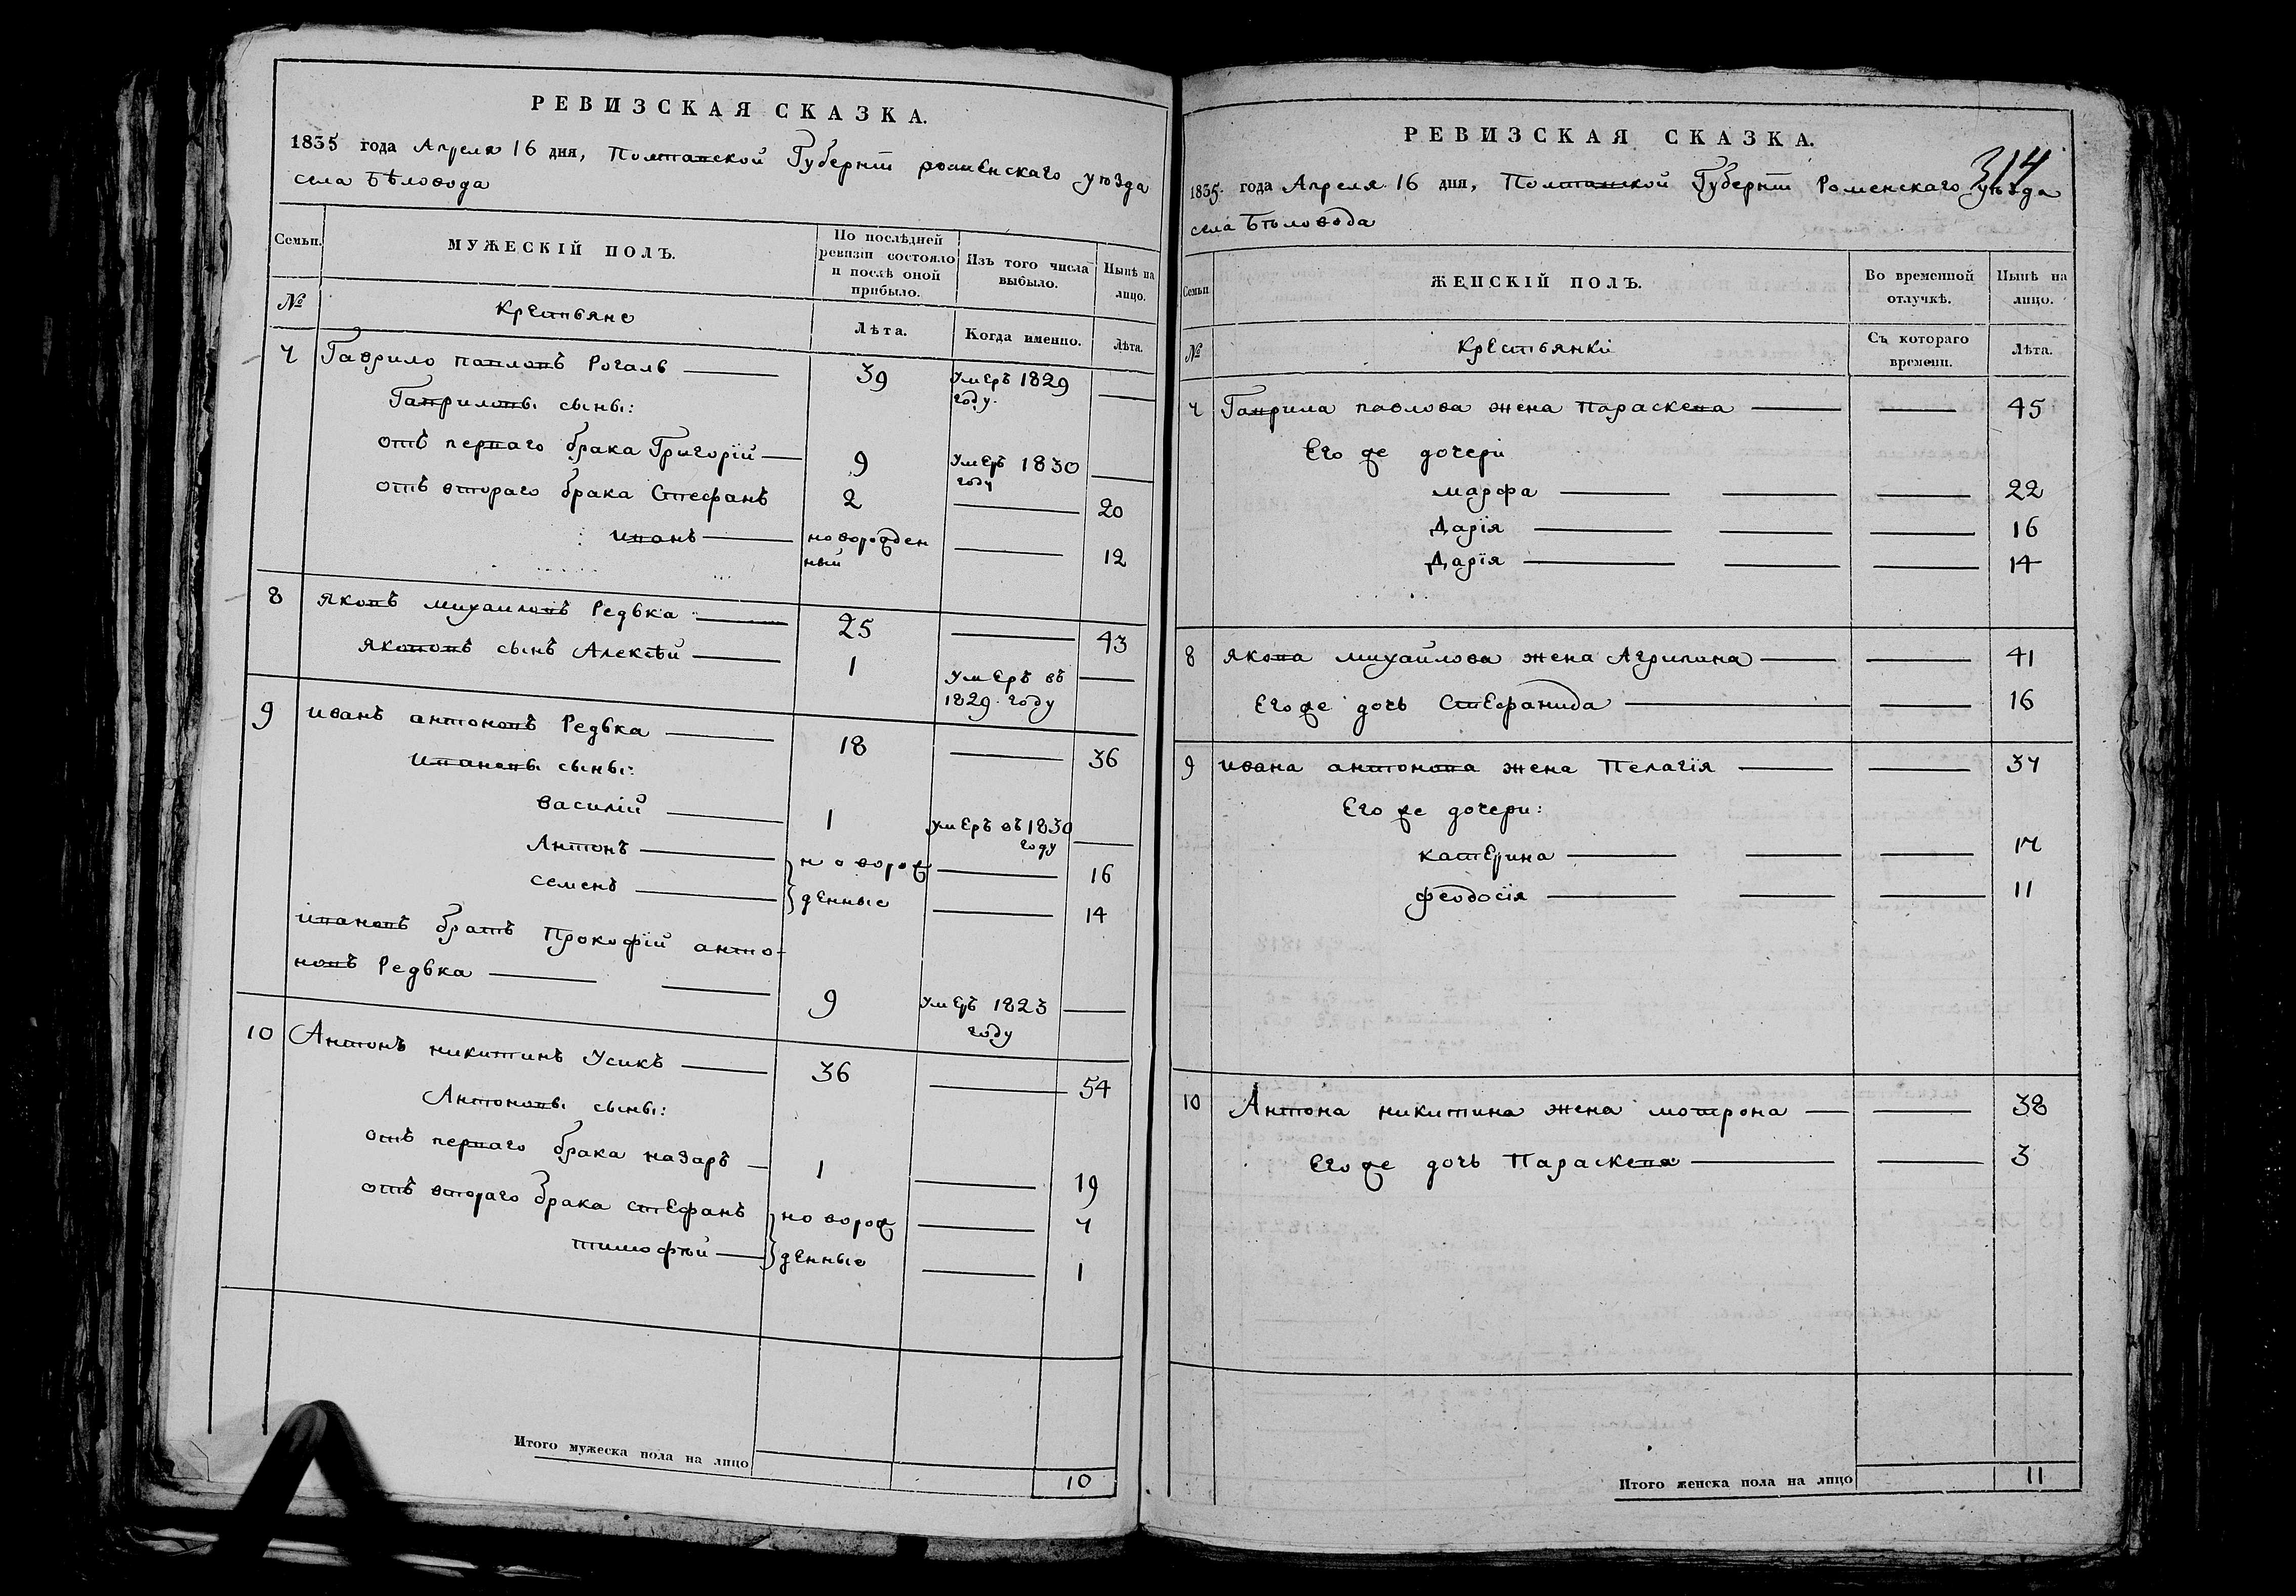 РЕВИЗСКАЯ СКАЗКА.
1835 года Апреля 16 дня, Полтавской Губерніи роменскаго уѣзда
села Бѣловода
Семьи. МУЖЕСКІЙ ПОЛЪ. По послѣдней ревизіи состояло и послѣ оной прибыло. Изъ того числа выбыло. Нынѣ на лицо.
№ Крестьяне Лѣта. Когда именно. Лѣта.
7 Гаврило павловъ Рогаль 39 умеръ 1829 году.
Гавриловы сыны:
отъ перваго брака Григорій 9 умеръ 1830 году
отъ втораго брака Стефанъ 2 20
иванъ новорожденный 12
8 яковъ михаиловъ Редька 25 43
якововъ сынъ Алексѣй 1 умеръ въ 1829 году
9 иванъ антоновъ Редька 18 36
ивановы сыны:
василій 1 умеръ въ 1830 году
Антонъ новорож 16
семенъ денные 14
ивановъ братъ Прокофій анто-
новъ Редька 9 умеръ 1823 году
10 Антонъ никитинъ Усикъ 36 54
Антоновы сыны:
отъ перваго брака назаръ 1 19
отъ втораго брака стефанъ новорож 7
тимофѣй денные 1
Итого мужеска пола на лицо 10
314
РЕВИЗСКАЯ СКАЗКА.
1835 года Апреля 16 дня, Полтавской Губерніи Роменскаго уѣзда
села Бѣловода
Семьи ЖЕНСКІЙ ПОЛЪ. Во временной отлучкѣ. Нынѣ на лицо.
№ крестьянки Съ котораго времени. Лѣта.
7 Гаврила павлова жена Параскева 45
Его же дочери
марфа 22
Дарія 16
Дарія 14
8 якова михайлова жена Агрипина 41
Его же дочь Стефанида 16
9 ивана антонова жена Пелагія 37
Его же дочери:
катерина 17
феодосія 11
10 Антона никитина жена мотрона 38
Его же дочь Параскева 3
Итого женска пола на лицо 11